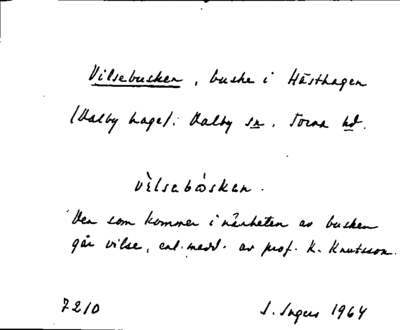 Vilsebusken, buske i Hästhagen
(Dalby hage). Dalby sn. Torna hd.
vìlsebåsken.
Den som kommer i närheten av busken
går vilse, enl. medd. av prof. K. Knutsson.
7210 I. Ingers 1964